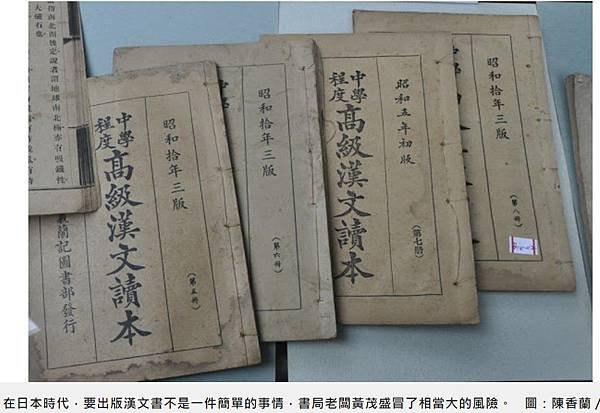 指南北而後定說者謂地球南北極亦有吸鐵性
大磁石也
昭和拾年三版
中學
程度
高級漢文讀本
(第五冊)
義蘭記圖書部發行
昭和拾年三版
(第六冊)
昭和五年初版
中學
程度
高級漢文讀本
(第七冊)
昭和拾年三版
(第八冊)
在日本時代，要出版漢文書不是一件簡單的事情，書局老闆黃茂盛冒了相當大的風險。 圖：陳香蘭/